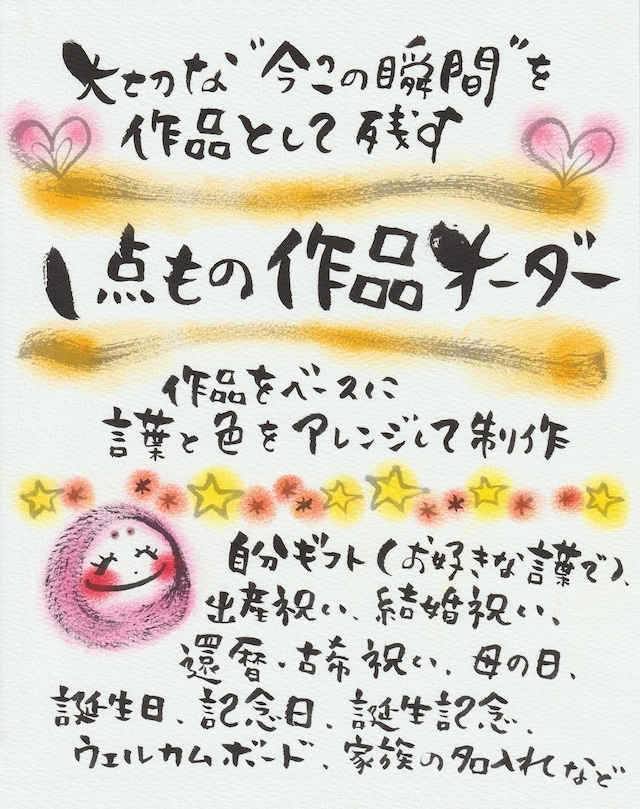 大切な"今この瞬間"を
作品として残す
1点もの作品オーダー
作品をベースに
言葉と色をアレンジして制作
自分ギフト(お好きな言葉で)、
出産祝い、結婚祝い、
還暦・古希祝い、母の日、
誕生日、記念日、誕生記念、
ウェルカムボード、家族の名入れなど